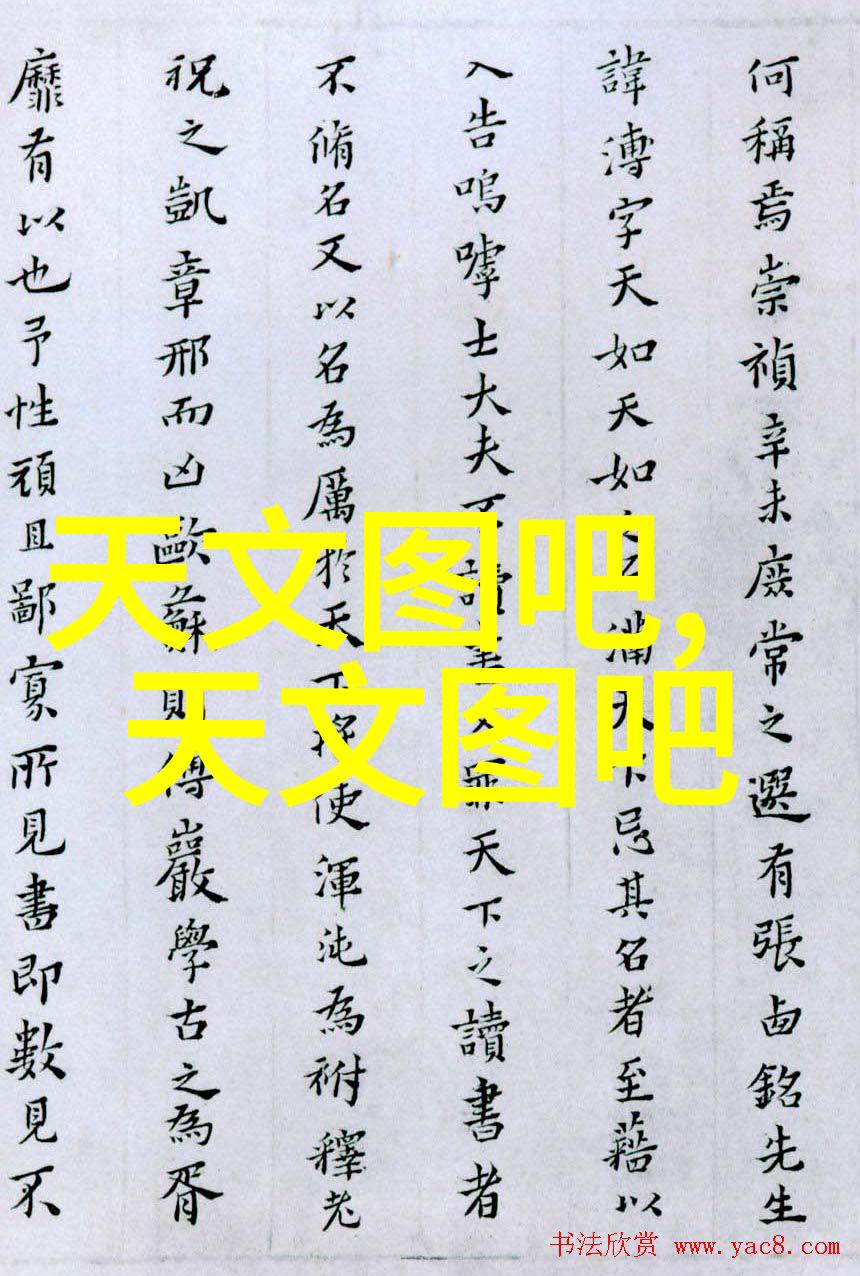 何稱焉崇禎辛未廢常之選有張卣銘先生
諱溥字天如天如之不滿天下忌其名者至藉以
入告嗚嘑士大夫不讀書之罪天下之讀書者
不脩名又以名為厲於天下將使渾沌為祔釋老
祝之凱章邢而凶歐蘇則傅巖學古之為胥
靡有以也予性頑且鄙寡所見書即數見不
天文图吧,
天文图吧
书法欣赏 www.yac8.com